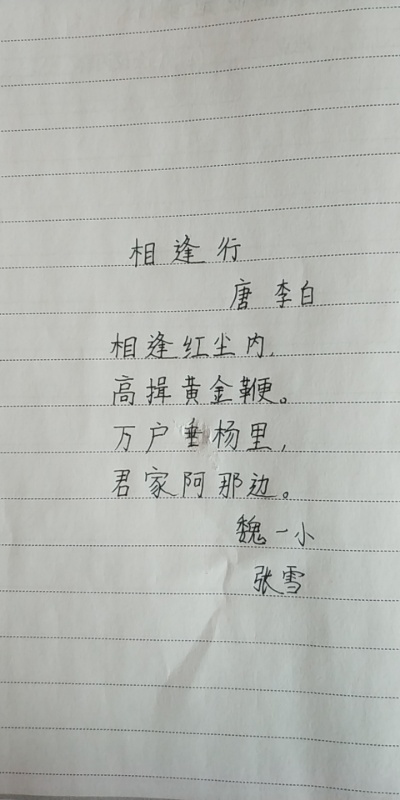 相逢行
唐 李白
相逢红尘内,
高揖黄金鞭。
万户垂杨里,
君家阿那边。
魏一小
张雪